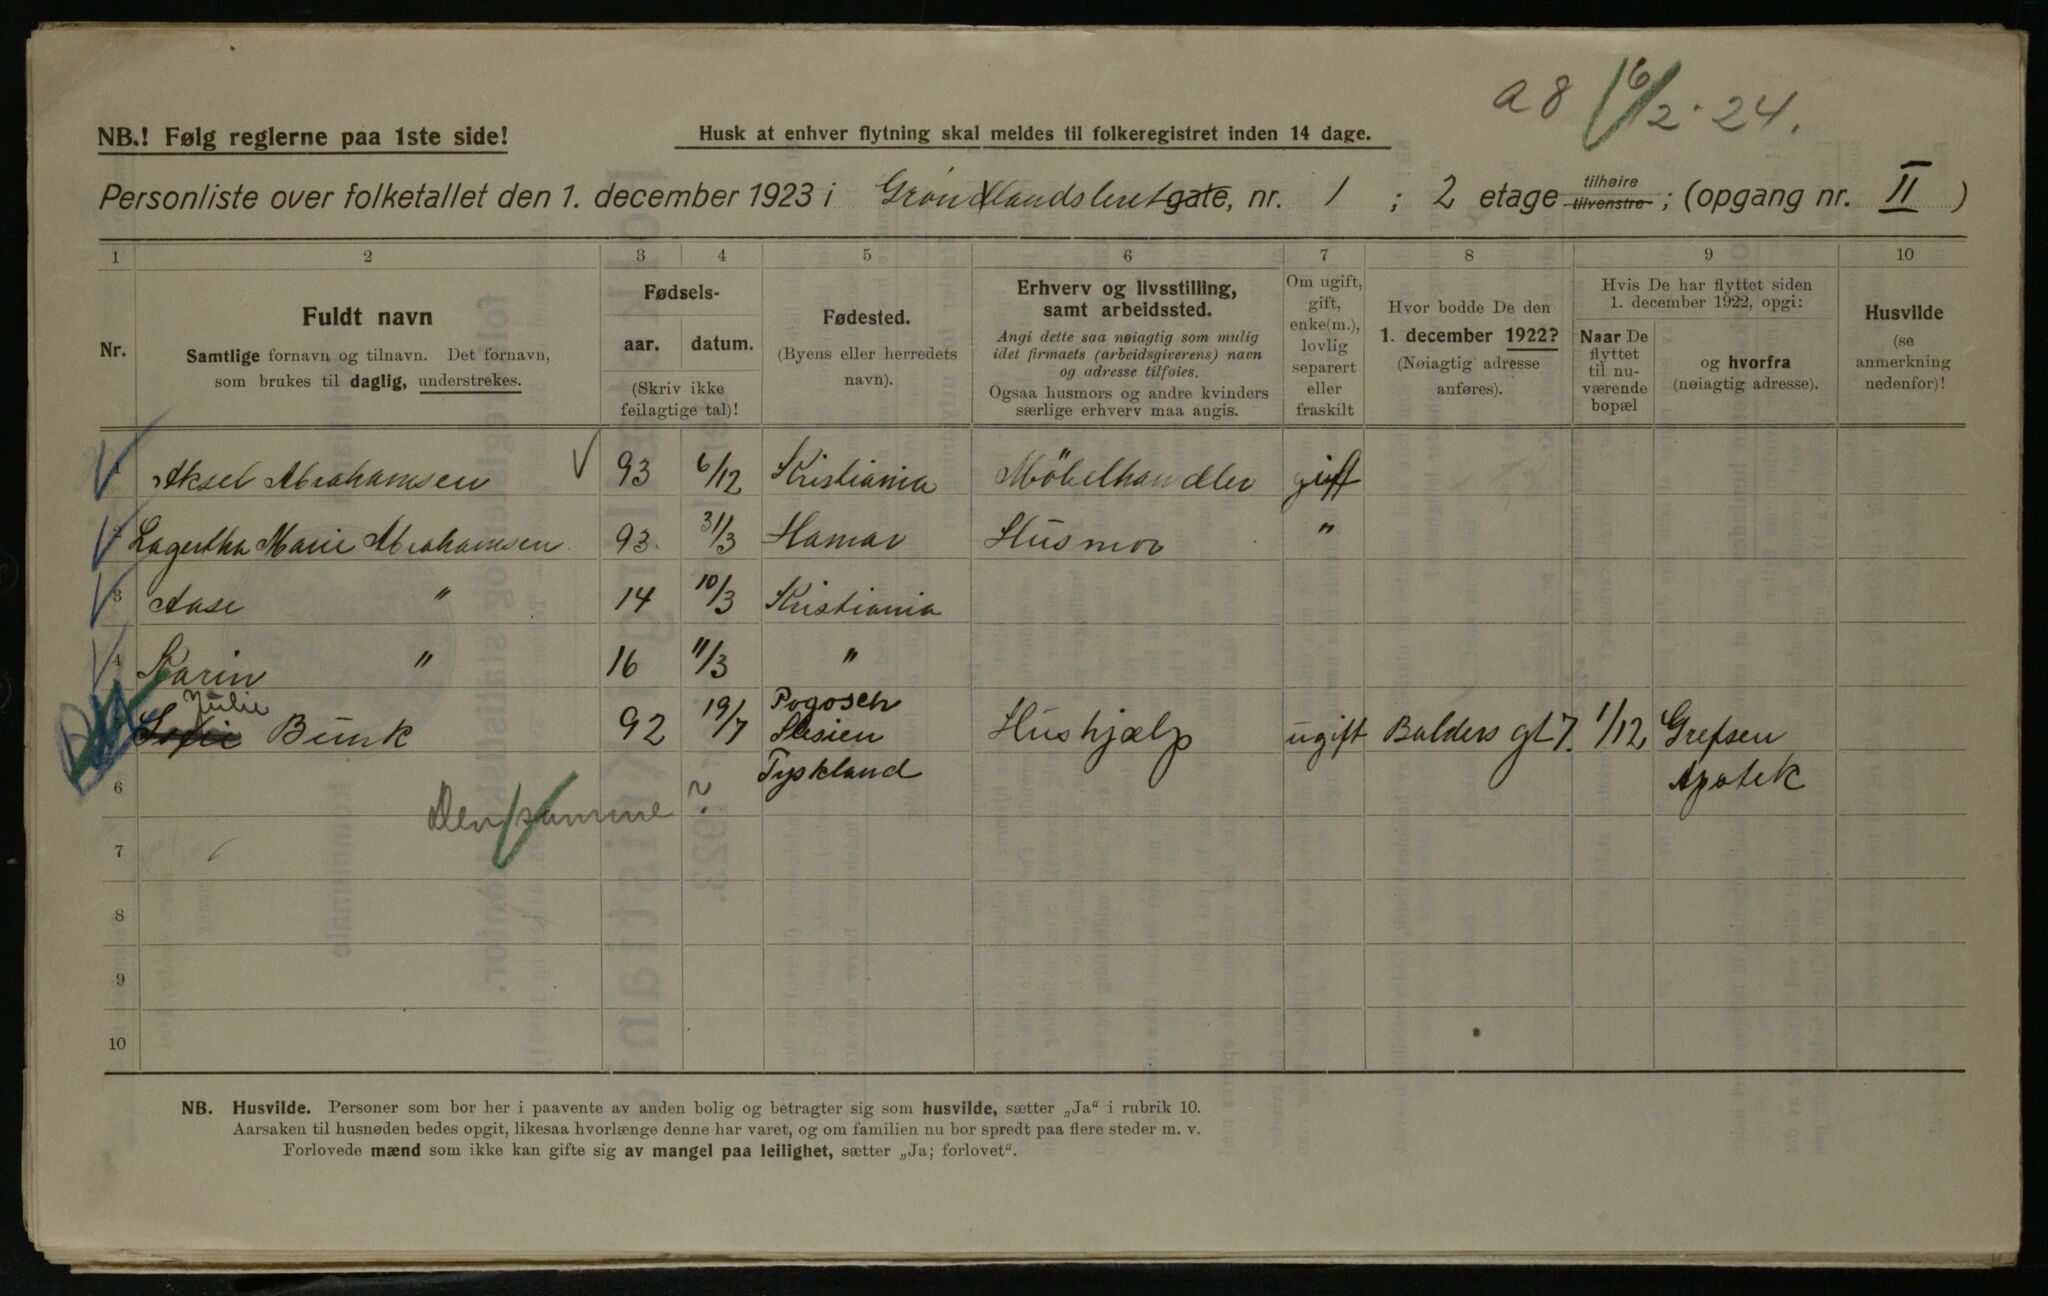 a 8 16/2 - 24.
NB.! Følg reglerne paa 1ste side!
Husk at enhver flytning skal meldes til folkeregistret inden 14 dage.
Personliste over folketallet den 1. december 1923 i Grønlandsleret gate, nr. 1 ; 2 etage tilhøire tilvenstre ; (opgang nr. II )
1 2 3 4 5 6 7 8 9 10
Nr.
Fuldt navn
Samtlige fornavn og tilnavn. Det fornavn,
som brukes til daglig, understrekes.
Fødsels-
aar. datum.
(Skriv ikke
feilagtige tal)!
Fødested.
(Byens eller herredets
navn).
Erhverv og livsstilling,
samt arbeidssted.
Angi dette saa nøiagtig som mulig
idet firmaets (arbeidsgiverens) navn
og adresse tilføies.
Ogsaa husmors og andre kvinders
særlige erhverv maa angis.
Om ugift,
gift,
enke(m.),
lovlig
separert
eller
fraskilt
Hvor bodde De den
1. december 1922?
(Nøiagtig adresse
anføres).
Hvis De har flyttet siden
1. december 1922, opgi:
Naar De
flyttet
til nu-
værende
bopæl
og hvorfra
(nøiagtig adresse).
Husvilde
(se
anmerkning
nedenfor)!
1 Aksel Abrahamsen 93 6/12 Kristiania Möbelhandler gift
2 Lagertha Marie Abrahamsen 93. 31/3 Hamar Husmor "
3 Aase " 14 10/3 Kristiania
4 Karin " 16 11/3 "
Julie
5 Sofie Bunk 92 19/7 Pogosch Slesien Tyskland Hushjælp ugift Balders gt 7. 1/12 Grefsen Apotek
6
Den samme ?
7
8
9
10
NB. Husvilde. Personer som bor her i paavente av anden bolig og betragter sig som husvilde, sætter „Ja“ i rubrik 10.
Aarsaken til husnøden bedes opgit, likesaa hvorlænge denne har varet, og om familien nu bor spredt paa flere steder m. v.
Forlovede mænd som ikke kan gifte sig av mangel paa leilighet, sætter „Ja; forlovet“.